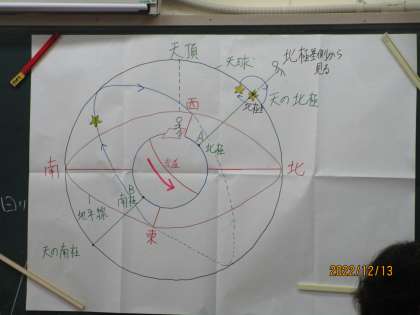 天頂
天球
北極星側から
見る
北極
天の北極
西
A
北極
南
北
B
南極
地平線
東
天の南極
2022/12/13